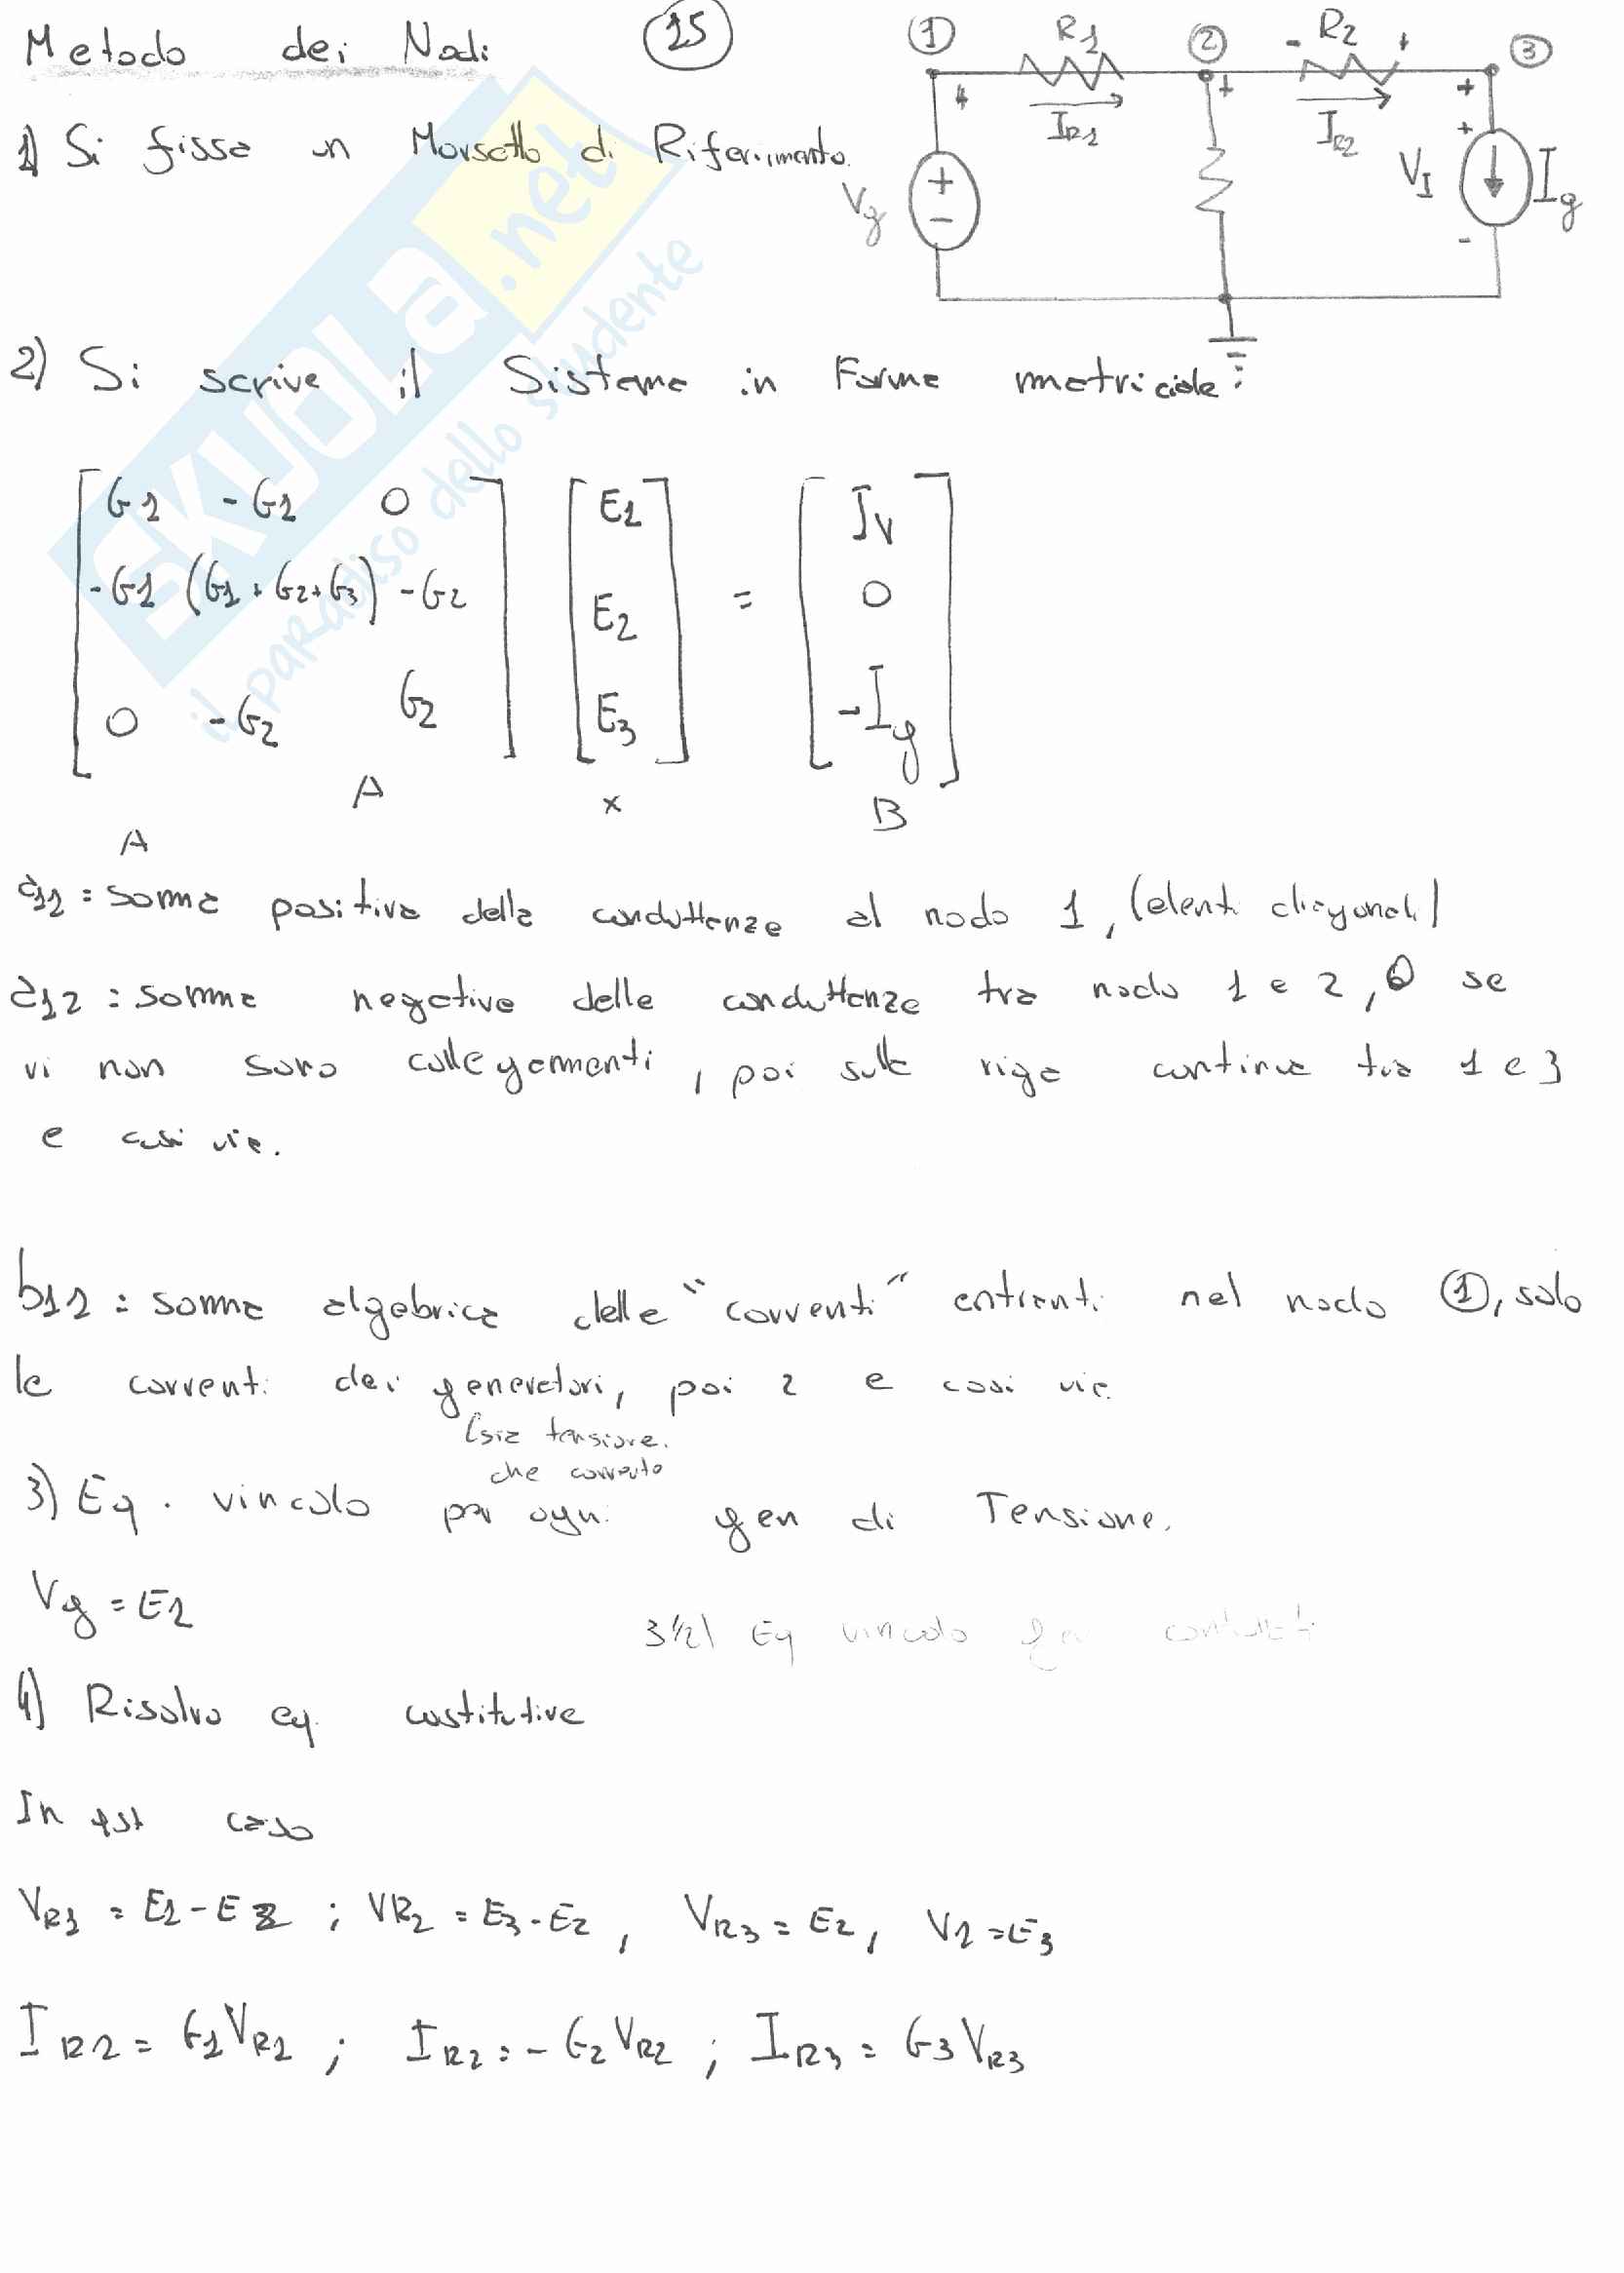 Metodo dei Nodi 15
1) Si fissa un Morsetto di Riferimento.
1 R1 2 - R2 + 3
+ IR1 + IR2 + +
Vg + - VI Ig -
2) Si scrive il Sistema in Forma matriciale:
G1 -G1 0 E1 IV
-G1 (G1+G2+G3) -G2 E2 = 0
0 -G2 G2 E3 -Ig
A x B
A
a11 = somma positiva delle conduttanze al nodo 1, (elenti diagonali)
a12 = somma negativa delle conduttanze tra nodo 1 e 2, 0 se
vi non sono collegamenti, poi sulla riga continua tra 1 e 3
e così via.
b11 = somma algebrica delle "correnti" entranti nel nodo 1, solo
le correnti dei generatori, poi 2 e così via
(sia tensione.
che corrente
3) Eq. vincolo per ogni gen di Tensione.
Vg = E1
3 1/2) Eq vincolo
4) Risolvo eq. costitutive
In qst caso
VR1 = E1-E2 ; VR2 = E3-E2 , VR3 = E2, VI = E3
IR1 = G1VR1 ; IR2 = -G2VR2 ; IR3 = G3VR3
SKUOLA.net
il paradiso dello studente